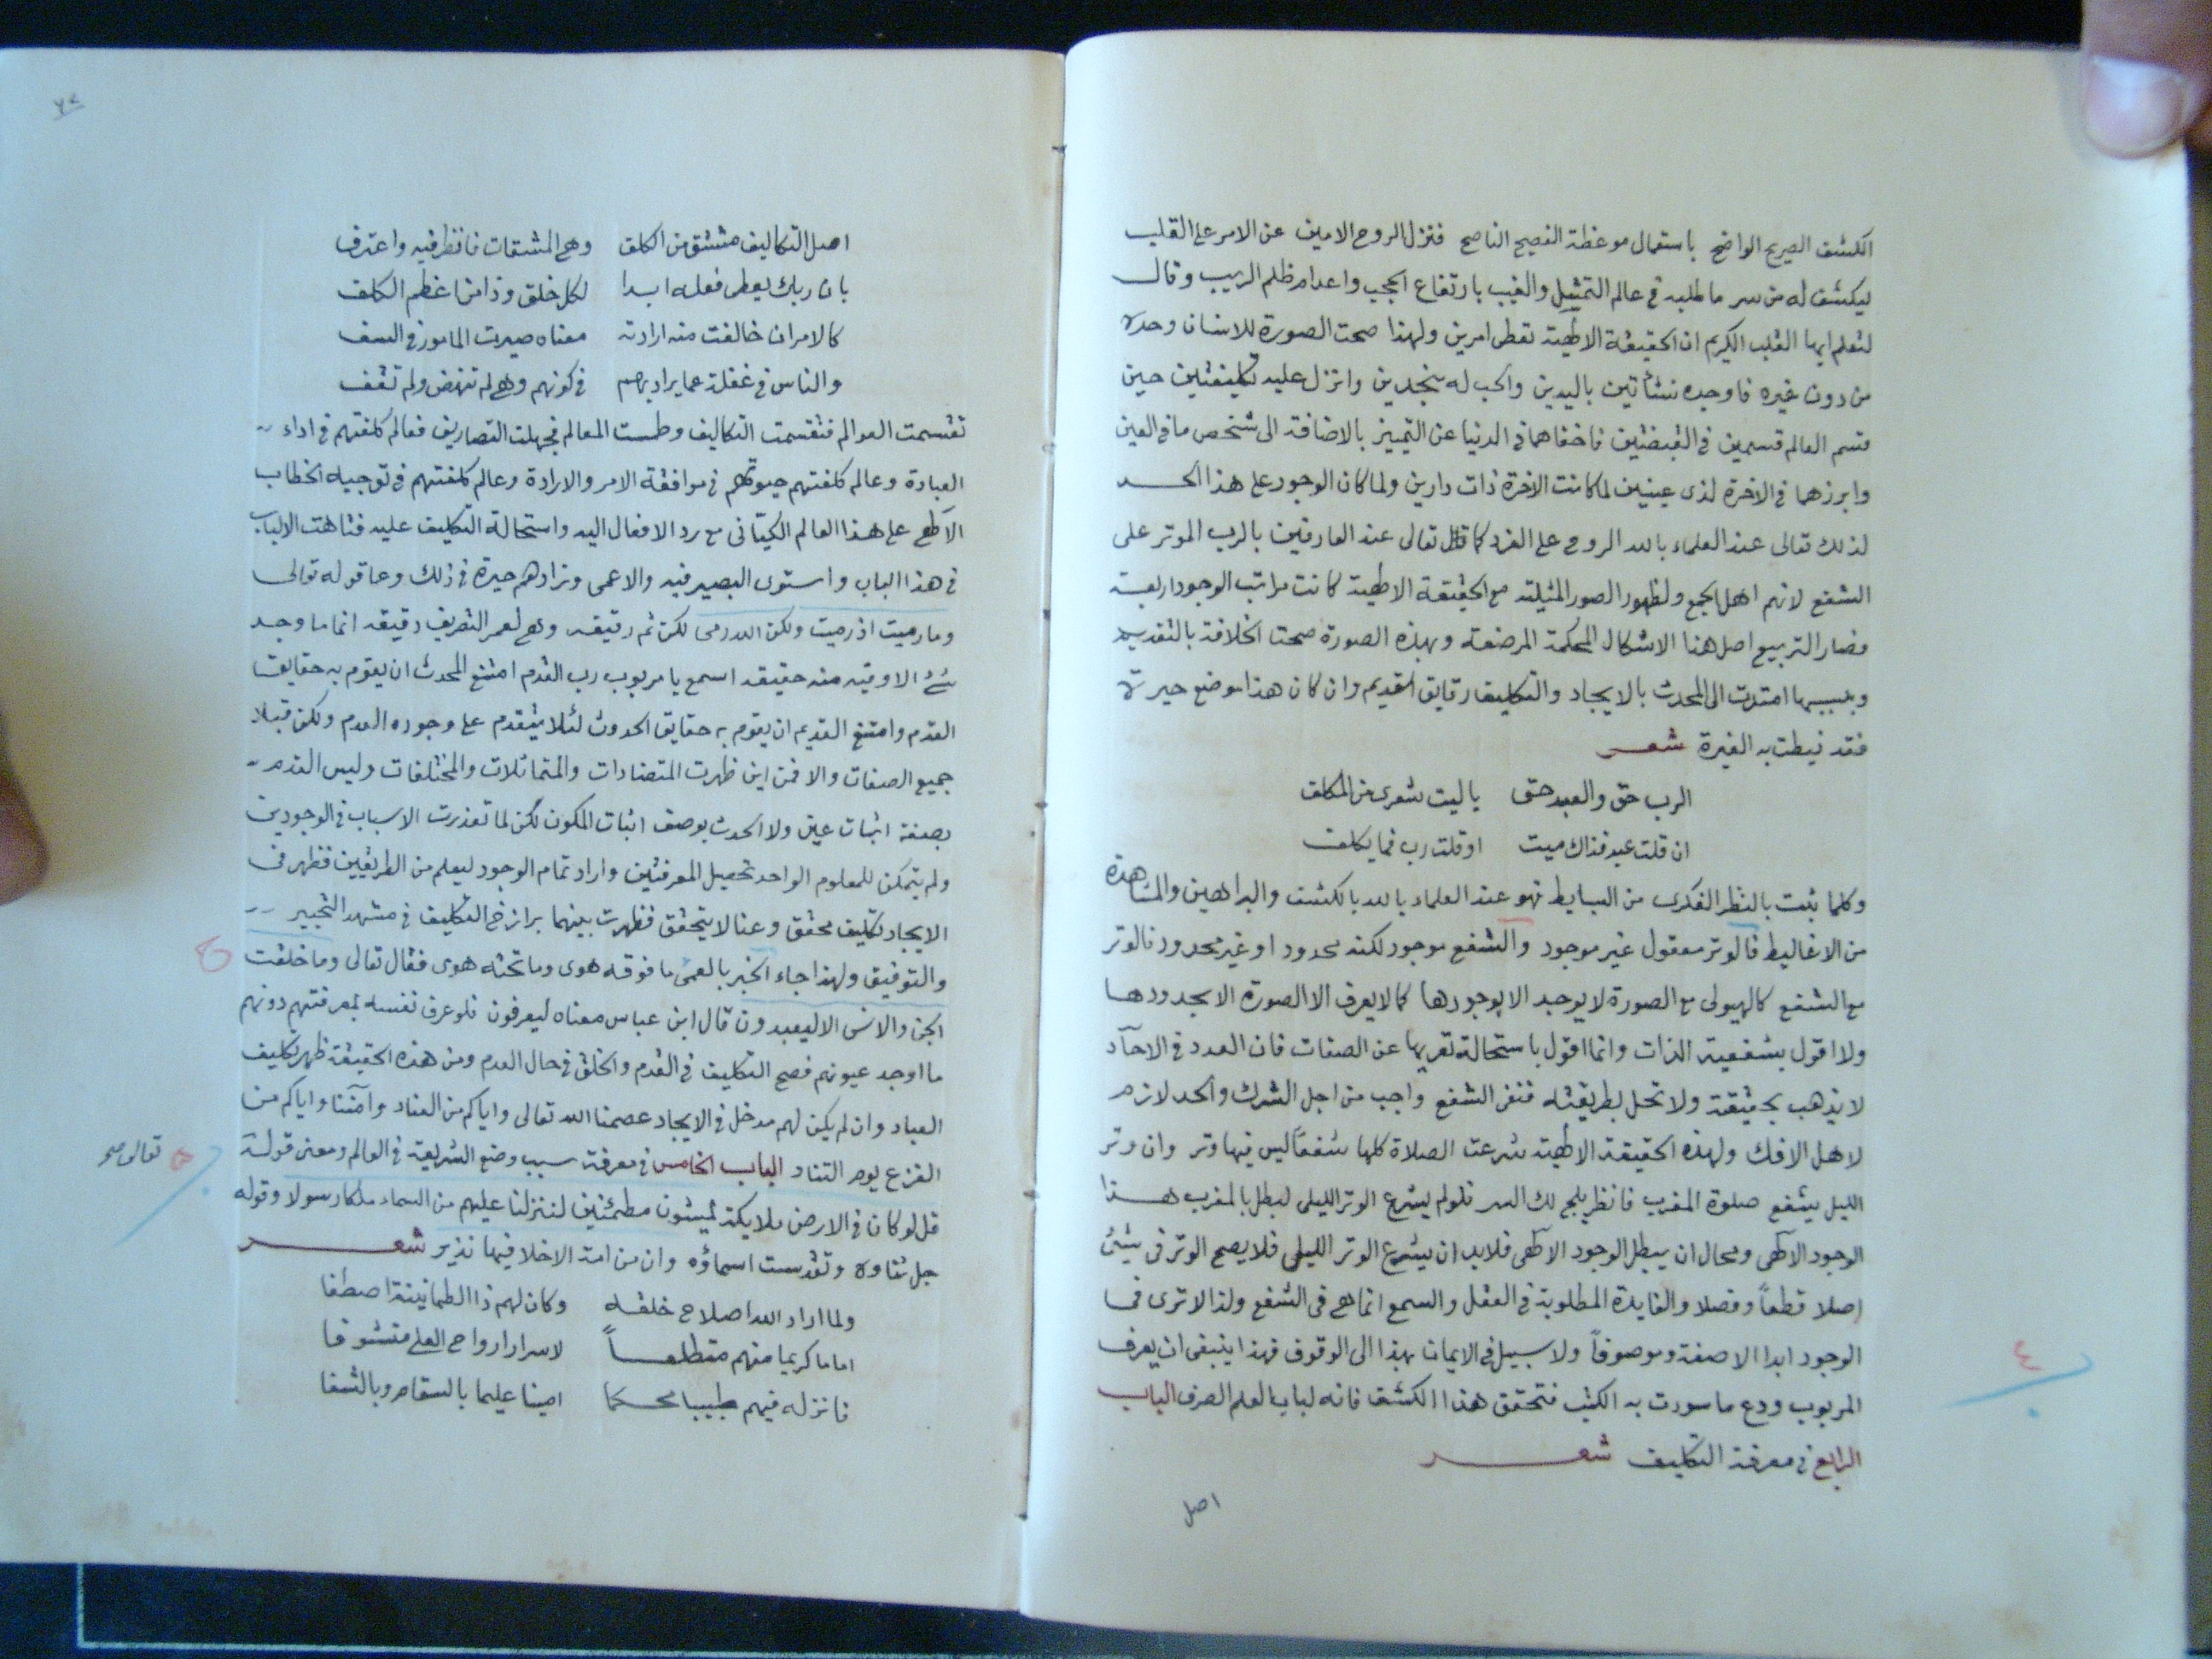 الكشف الصريح الواضح باستعمال موعظة الفصيح الناصح فنزل الروح الامين عن الامر على القلب
ليكشف له من سر ما طلبه في عالم التمثيل والغيب بارتفاع الحجب واعدام ظلم الريب وقال
لتعلم ايها القلب الكريم ان الحقيقة الالهية تعطى امرين ولهذا صحت الصورة للانسان وحده
من دون غيره فاوجده نشأتين باليدين وانزل عليه تكليفين حين
قسم العالم قسمين في القبضتين فاخفاهما في الدنيا عن التمييز بالاضافة الى شخص ما في العين
وابرزهما في الاخرة لذى عينين لما كانت الاخرة ذات دارين ولما كان الوجود على هذا الحد
لذلك تعالى عند العلماء بالله الروح على الفرد كما قال تعالى عند العارفين بالرب الموتر على
الشفع لانهم اهل الجمع ولظهور الصور المثلية مع الحقيقة الالهية كانت مراتب الوجود اربعة
فصار التربيع اصل هنا الاشكال المحكمة المرضعة وبهذه الصورة صحت الخلافة بالتقديم
وبسببها امتدت الى المحدث بالايجاد والتكليف رقايق القديم وان كان هذا موضع حيرة
فقد نيطت به الغيرة شعر
الرب حق والعبد حق يا ليت شعرى من المكلف
ان قلت عبد فذاك ميت او قلت رب فما يكلف
وكلما ثبت بالنظر الفكرى من البسايط فهو عند العلماء بالله بالكشف والبراهين والمشاهدة
من الاغاليط فالوتر معقول غير موجود والشفع موجود لكنه محدود او غير محدود فالوتر
مع الشفع كالهيولى مع الصورة لا يوجد الا بوجودها كما لا يعرف الا الصورة الا بحدودها
ولا اقول بشفعية الذات وانما اقول باستحالة تعريها عن الصفات فان العدد في الاحآد
لا يذهب بحقيقة ولا تحل بطريقته فنفى الشفع واجب من اجل الشرك والحد لازم
لاهل الافك ولهذه الحقيقة الالهية شرعت الصلاة كلها شفعاً ليس فيها وتر وان وتر
الليل يشفع صلوة المغرب فانظر يلج لك السر فلو لم يشرع الوتر الليلى لبطل بالمغرب هذا
الوجود الالهى ومحال ان يبطل الوجود الالهى فلا بد ان يشرع الوتر الليلى فلا يصح الوتر فى شئ
اصلا قطعاً وفصلا والفايدة المطلوبة في العقل والسمع انما هي فى الشفع ولذا لا ترى فى
الوجود ابدا الا صفة وموصوفاً ولا سبيل فى الايمان بهذا الى الوقوف فهذا ينبغى ان يعرف
المربوب ودع ما سورت به الكتب فتحقق هذا الكشف فانه لباب العلم الصرف الباب
الرابع في معرفة التكليف شعر
اصل
٤
اصل التكاليف مشتق من الكلف وهى المشقات فانظر فيه واعترف
بان ربك يعطى فعله ابدا لكل خلق وذا من اعظم الكلف
كالامر ان خالفت منه ارادته معناه صيرت المامور فى السف
والناس في غفلة عما يراد بهم في كونهم وهي لم تنهض ولم تقف
تقسمت العوالم فتقسمت التكاليف وطمست المعالم فجهلت التصاريف فعالم كلفتهم في اداء
العبادة وعالم كلفتهم حيوتهم في موافقة الامر والارادة وعالم كلفتهم في توجيه الخطاب
الالهى على هذا العالم الكيانى مع رد الافعال اليه واستحالة التكليف عليه فتاهت الالباب
في هذا الباب واستوى البصير فيه والاعمى وزادهم حيرة في ذلك وعا قوله تعالى
وما رميت اذ رميت ولكن الله رمى لكن ثم رقيقه وهي لعمر التصريف دقيقه انما ما وجد
شئ الا وفيه منه حقيقه اسمع يا مربوب رب القدم امتنع المحدث ان يقوم به حقايق
القدم وامتنع القديم ان يقوم به حقايق الحدوث لئلا يتقدم على وجوده العدم ولكن قبلا
جميع الصفات والا فمن اين ظهرت المتضادات والمتماثلات والمختلفات وليس القدم
بصفة اثبات عين ولا الحدث بوصف اثبات المكون لكن لما تعذرت الاسباب في الوجودين
ولم يتمكن للمعلوم الواحد تحصيل المعرفتين واراد تمام الوجود ليعلم من الطريقين فظهر فى
الايجاد تكليف محقق وعنا لا يتحقق فظهرت بينهما برازخ التكليف في مشهد التحيير
والتوفيق ولهذا جاء الخبر بالعمى ما فوقه هوى وما تحته هوى فقال تعالى وما خلقت
الجن والانس الا ليعبدون قال ابن عباس معناه ليعرفون فلو عرف نفسه بمعرفتهم دونهم
ما اوجد عيونهم فصح التكليف في القدم والخلق في حال العدم ومن هذه الحقيقة ظهر تكليف
العباد وان لم يكن لهم مدخل في الايجاد عصمنا الله تعالى واياكم من العناد وآمننا واياكم من
الفزع يوم التناد الباب الخامس في معرفة سبب وضع الشريعة في العالم ومعنى قوله
تعالى صح
قل لو كان في الارض ملايكة يمشون مطمئنين لنزلنا عليهم من السماء ملكا رسولا وقوله
جل ثناوه وتقدست اسماؤه وان من امة الا خلا فيها نذير شعر
ولما اراد الله اصلاح خلقه وكان لهم ذا الطمانينة اصطفا
اماما كريما منهم متطلعاً لاسرار ارواح العلى متشوفا
فانزله فيهم طبيبا محكما امينا عليما بالسقام وبالشفا